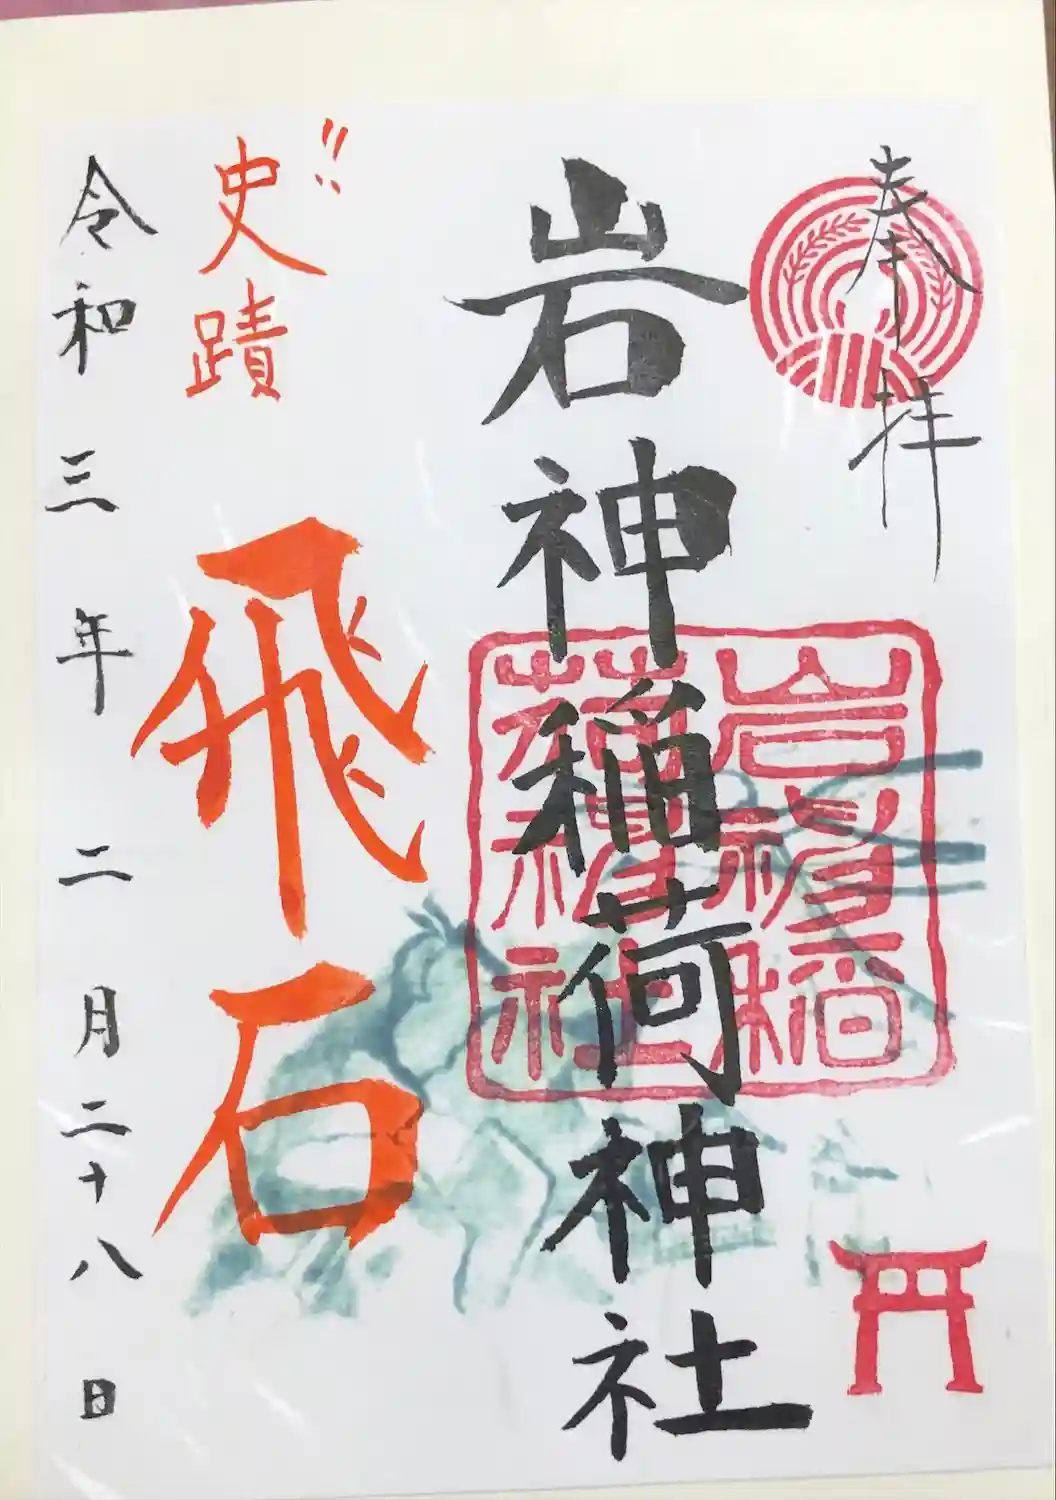 奉拝
岩神稲荷神社
岩神稲荷神社
〃史蹟
飛石
令和三年二月二十八日